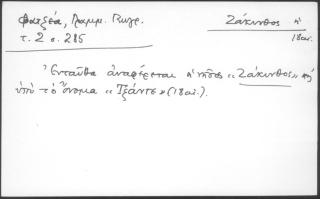 Φατζέα, Γραμμ. Πυργ.
τ. 2 σ. 285
Ζάκυνθος ἡ
18αι.
Ἐνταῦθα ἀναφέρεται ἡ νῆσος «Ζάκυνθος» καὶ
ὑπὸ τὸ ὄνομα «Τζάντε» (18αι.).